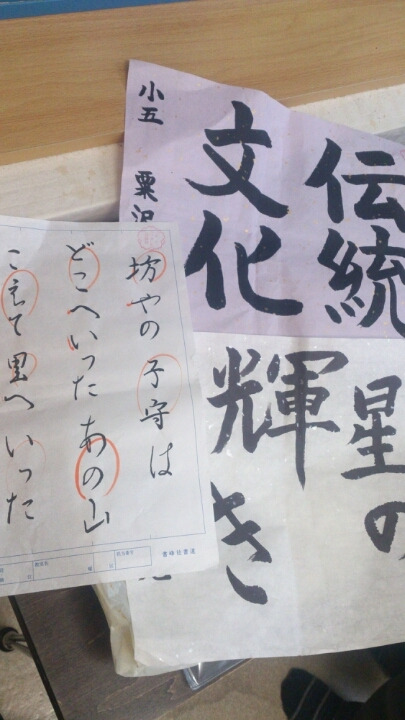 伝統
文化
小五 粟沢
星の
輝き
坊やの子守は
どこへいったあの山
こえて里へいった
書峰社書道